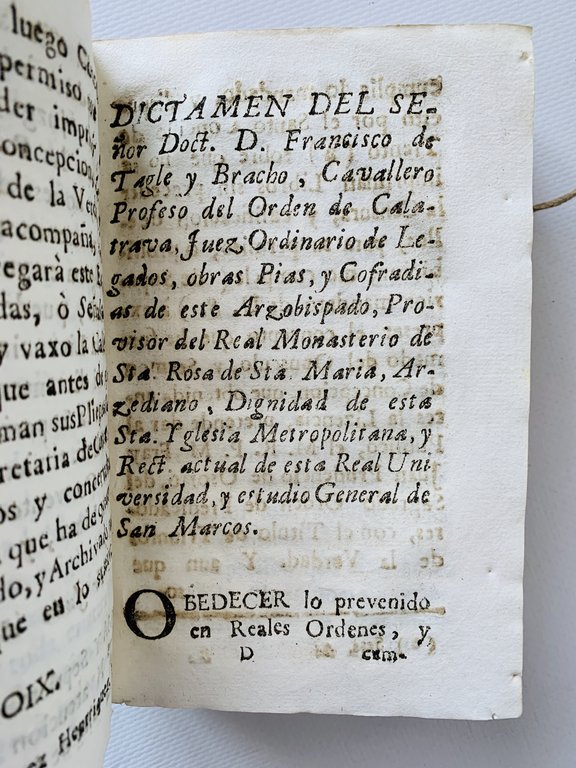 luego
permiso
der
oncepcion,
de la
acompaña,
regarà este
das, ò
y vaxo la
que antes de
man sus
retaria de
os y
que ha de
do, y Archivado
que en lo
OIX.
DICTAMEN DEL SE-
ñor Doct. D. Francisco de
Tagle y Bracho, Cavallero
Profeso del Orden de Cala-
trava, Juez Ordinario de Le-
gados, obras Pias, y Cofradi-
as de este Arzobispado, Pro-
visor del Real Monasterio de
Sta. Rosa de Sta. Maria, Ar-
zediano, Dignidad de esta
Sta. Yglesia Metropolitana, y
Rect. actual de esta Real Uni
versidad, y estudio General de
San Marcos.
OBEDECER lo prevenido
en Reales Ordenes, y,
D cum-